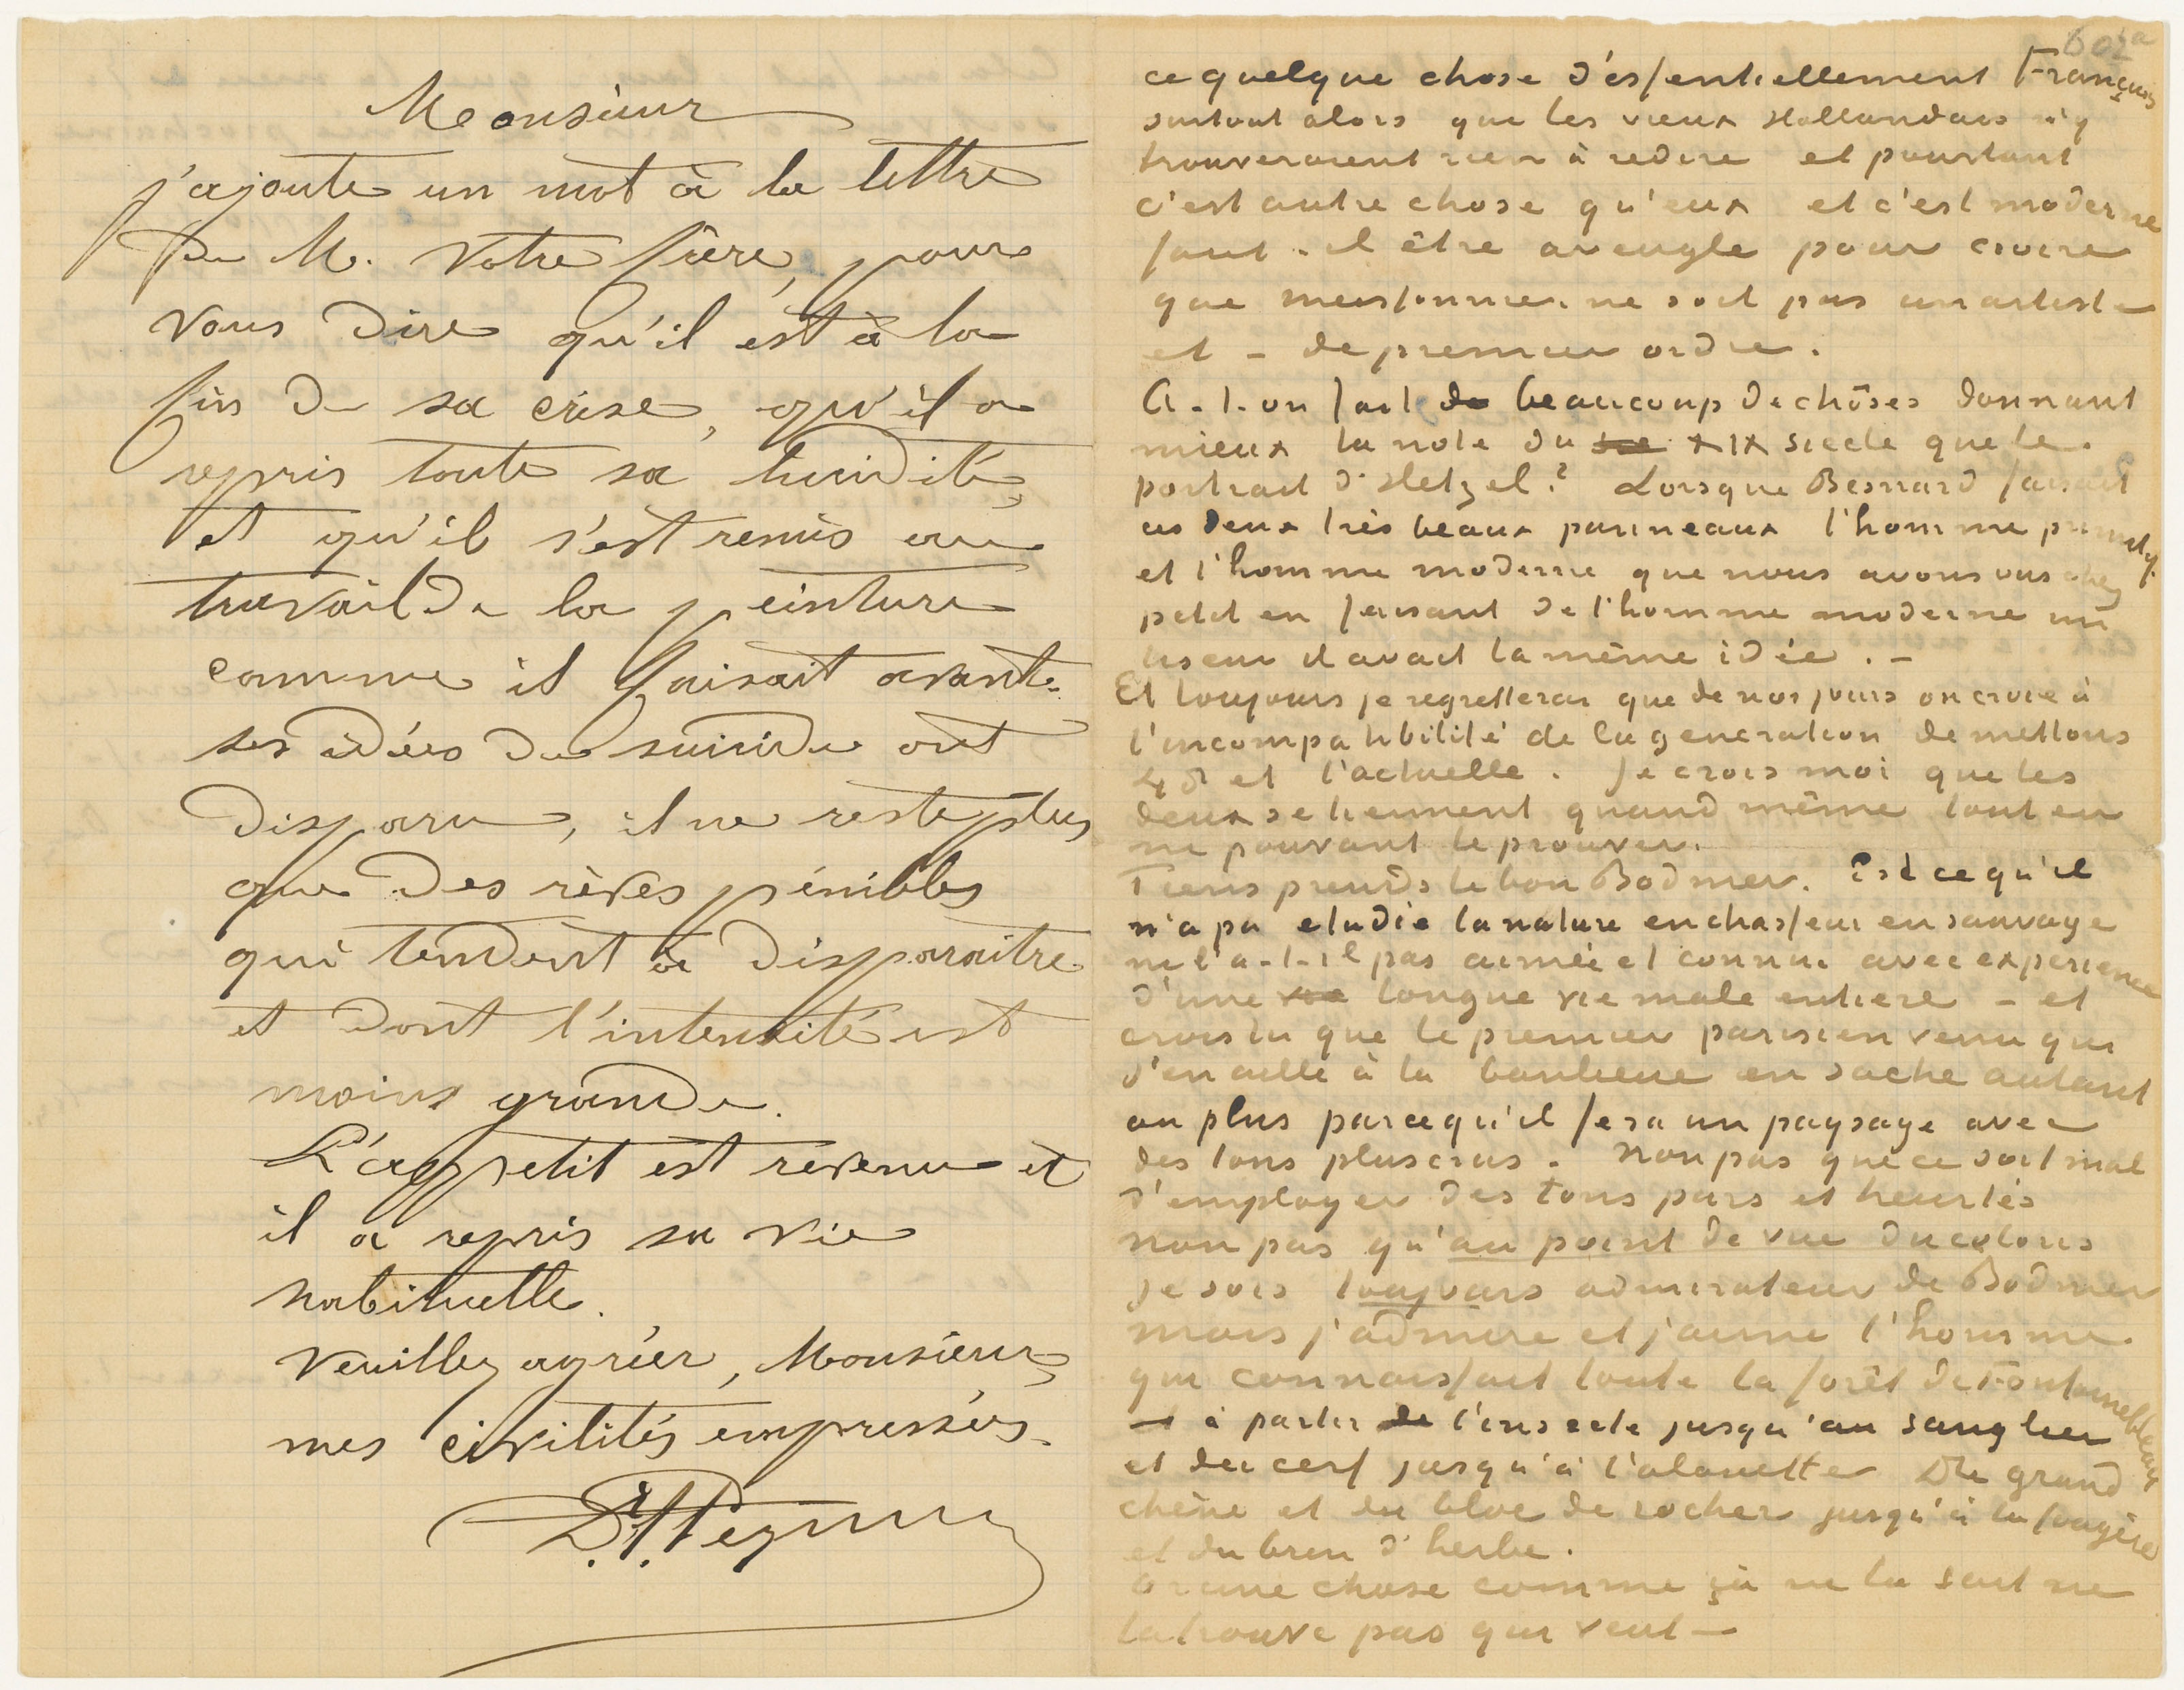 Monsieur
j'ajoute un mot à la lettre
de M. votre frère, pour
vous dire qu'il est à la
fin de sa crise, qu'il a
repris toute sa lucidité,
et qu'il s'est remis au
travail de la peinture
comme il faisait avant.
ses idées de suicide ont
disparu, il ne reste plus
que des rêves pénibles
qui tendent à disparaitre
et dont l'intensité est
moins grande.
L'appetit est revenu et
il a repris sa vie
habituelle.
Veuillez agréer, Monsieur,
mes civilités empressées.
Dr. Th. Peyron
602a
ce quelque chose d'essentiellement Français
surtout alors que les vieux Hollandais n'y
trouveraient rien à redire et pourtant
c'est autre chose qu'eux et c'est moderne
faut-il être aveugle pour croire
que meissonnier ne soit pas un artiste
et – de premier ordre.
A-t-on fait de beaucoup de chôses donnant
mieux la note du XIX siecle que le
portrait d'Hetzel? Lorsque Besnard faisait
ces deux très beaux panneaux l'homme primitif
et l'homme moderne que nous avons vus chez
petit en faisant de l'homme moderne un
liseur il avait la même idée. –
Et toujours je regretterai que de nos jours on croie à
l'incompatibilité de la generation de mettons
48 et l'actuelle. Je crois moi que les
deux se tiennent quand même tout en
ne pouvant le prouver.
Tiens prends le bon Bodmer. Est ce qu'il
n'a pu etudie la nature en chasseur en sauvage
ne l'a-t-il pas aimée et connue avec experience
d'une vie longue vie male entiere – et
crois tu que le premier parisien venu qui
s'en aille à la banlieue en sache autant
ou plus parcequ'il fera un paysage avec
des tons plus crus. Non pas que ce soit mal
d'employer des tons purs et heurtés
non pas qu'au point de vue du coloris
je sois toujours admirateur de Bodmer
mais j'admire et j'aime l'homme
qui connaissait toute la forêt de Fontainebleau
à partir de l'insecte jusqu'au sanglier
et du cerf jusqu'à l'alouette Du grand
chêne et du bloc de rocher jusqu'à la fougère
et du brin d'herbe.
Or une chose comme çà ne la sent ne
la trouve pas qui veut –